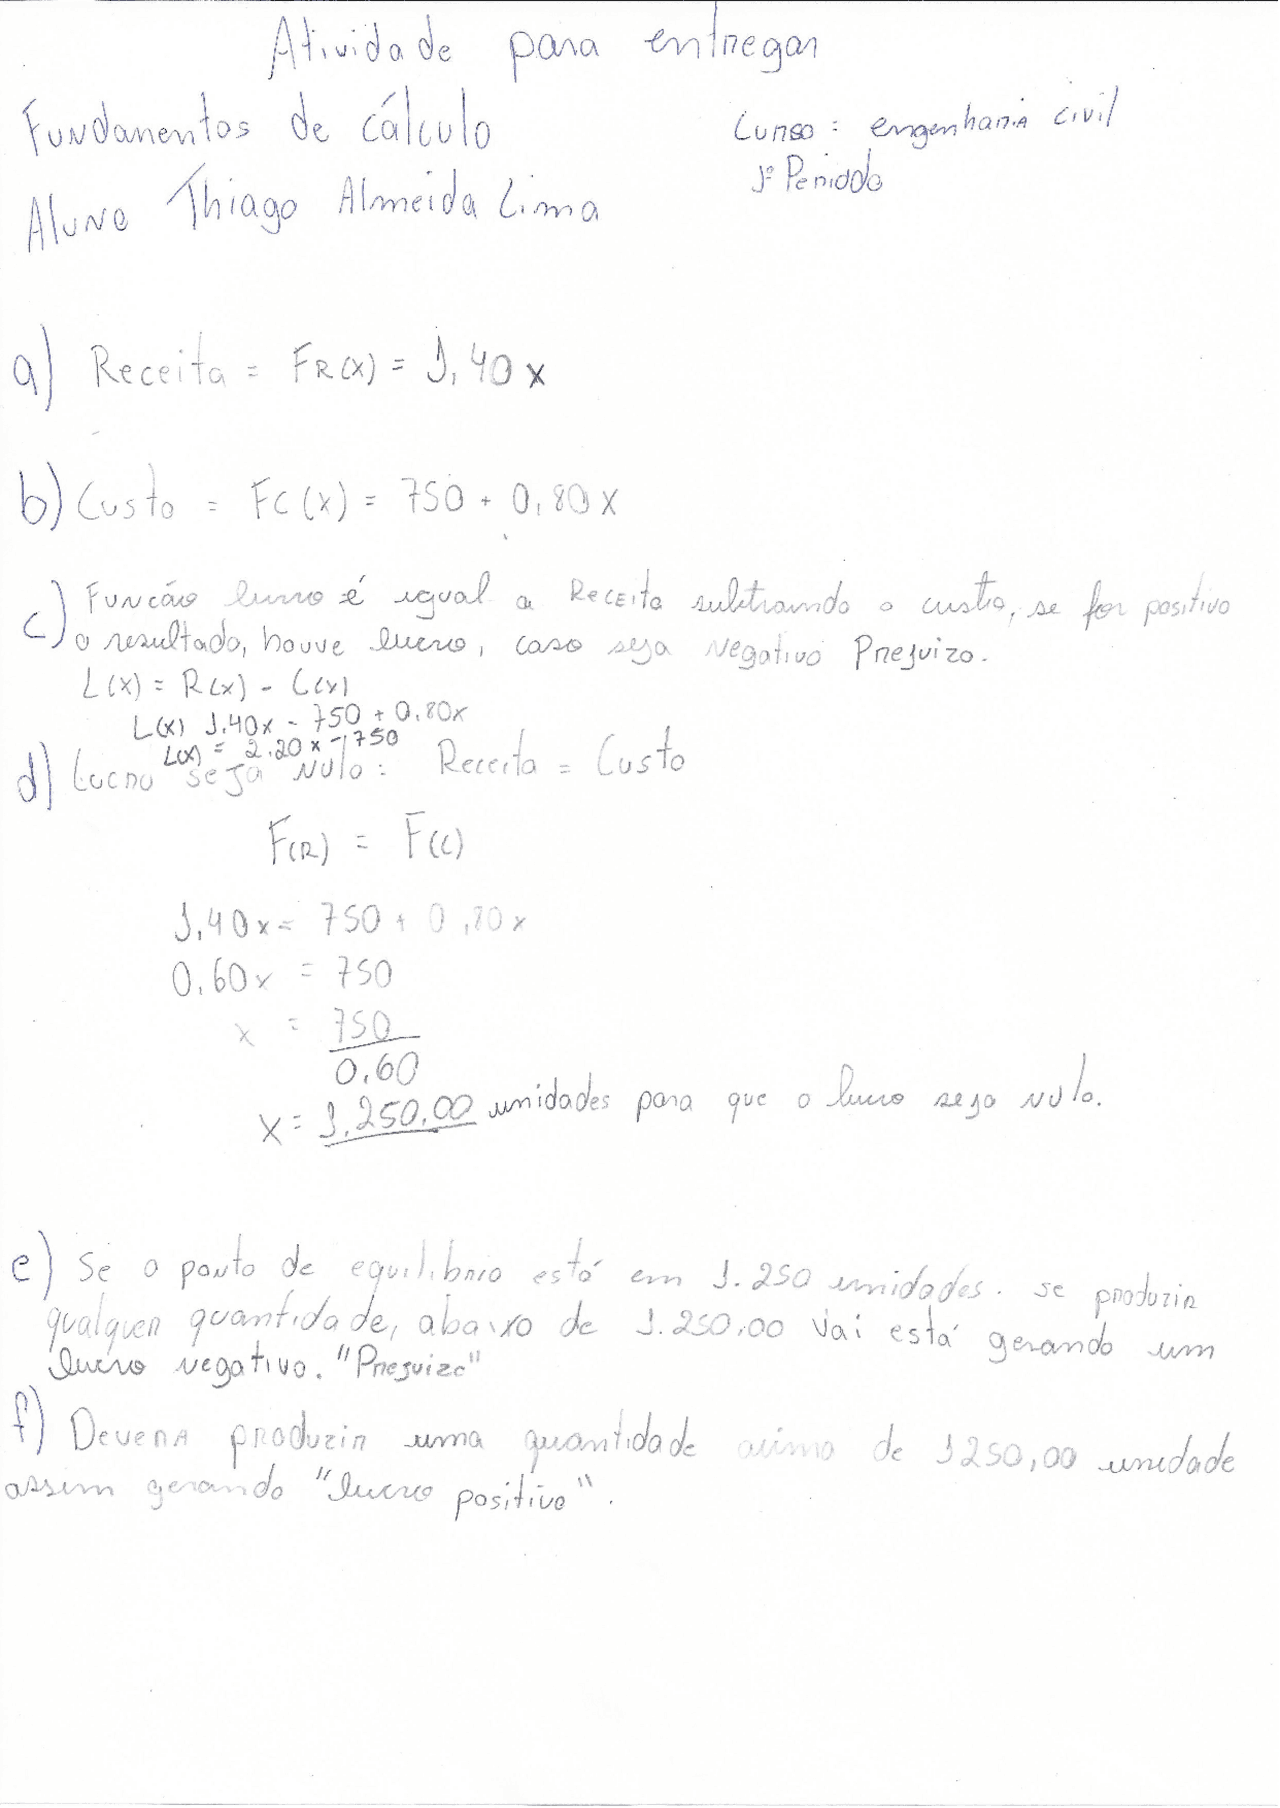 Atividade para entregar
Fundamentos de cálculo
Curso: engenharia civil
1º Período
Aluno Thiago Almeida Lima
a) Receita = FR(x) = 1,40x
b) Custo = FC(x) = 750 + 0,80x
c) Funcão lucro é igual a Receita subtraindo o custo, se for positivo
o resultado, houve lucro, caso seja negativo Prejuizo.
L(x) = R(x) - C(x)
L(x) 1.40x - 750 + 0.80x
L(x) = 2.20x - 750
d) Lucro seja nulo: Receita = Custo
F(R) = F(C)
1,40x = 750 + 0,80x
0,60x = 750
x = 750
0,60
x = 1.250,00 unidades para que o lucro seja nulo.
e) Se o ponto de equilibrio está em 1.250 unidades. se produzir
qualquer quantidade, abaixo de 1.250,00 vai está gerando um
lucro negativo. "Prejuizo"
f) Deverá produzir uma quantidade acima de 1250,00 unidade
assim gerando "lucro positivo".